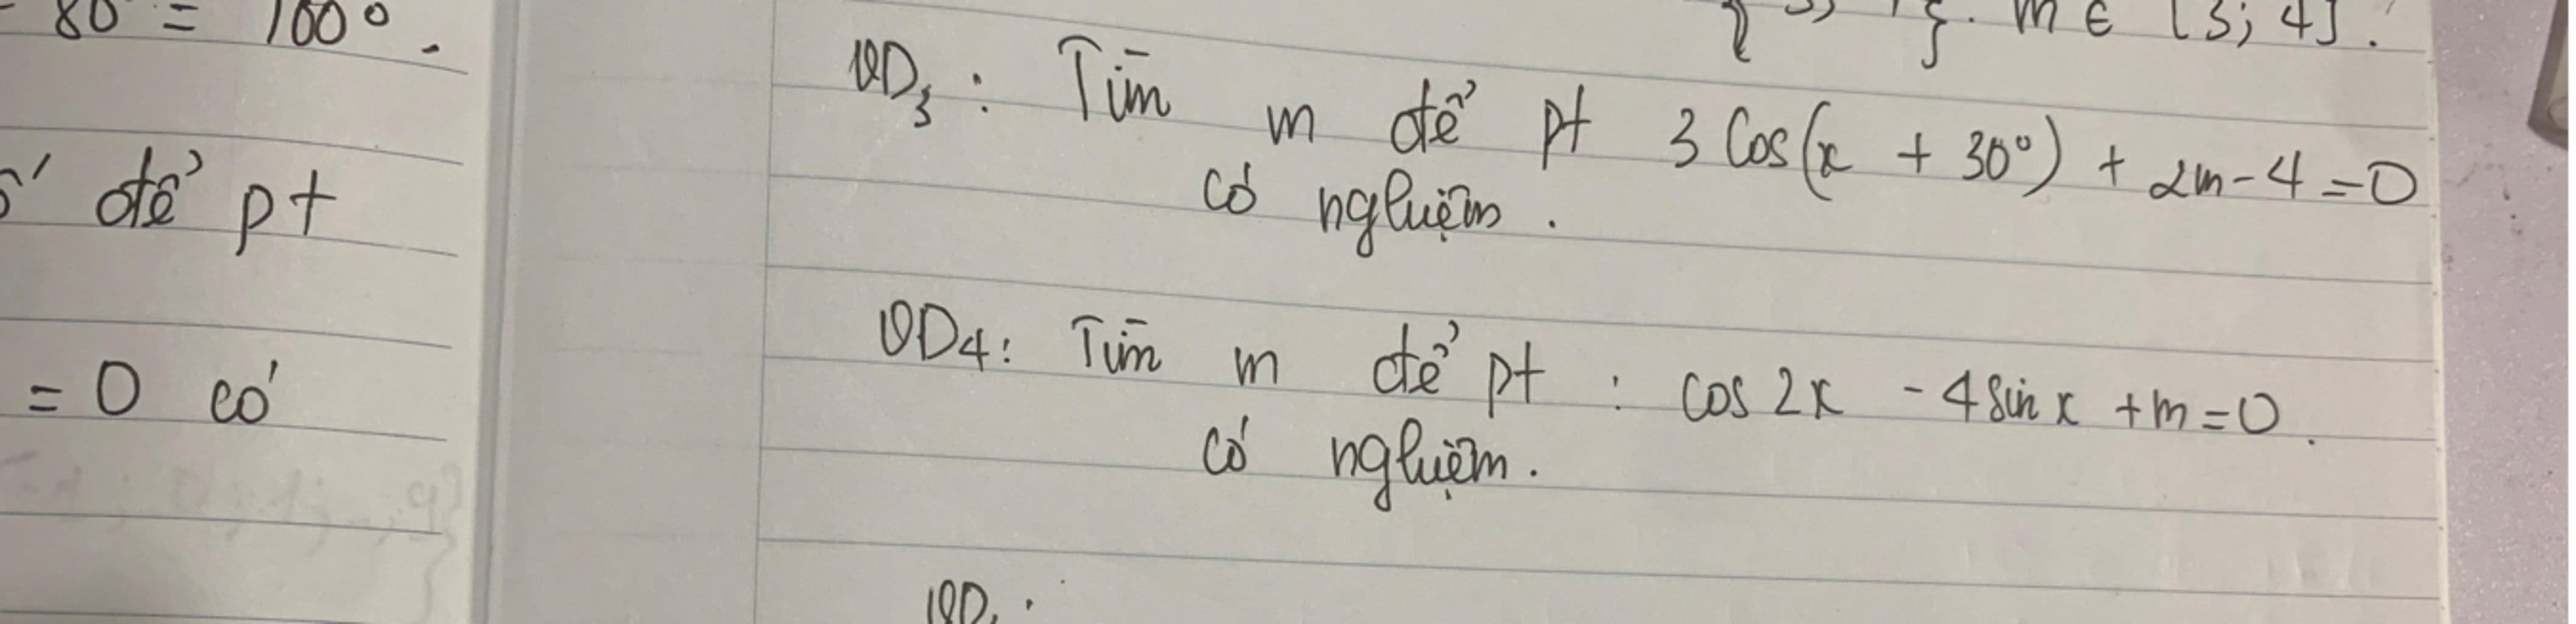 80 = 100°.
để pt
= 0 có
m ∈ [3; 4].
VD3: Tìm m để pt 3 Cos(x + 30°) + 2m - 4 = 0
có nghiệm.
VD4: Tìm m để pt : cos 2x - 4 sin x + m = 0.
có nghiệm.
VD